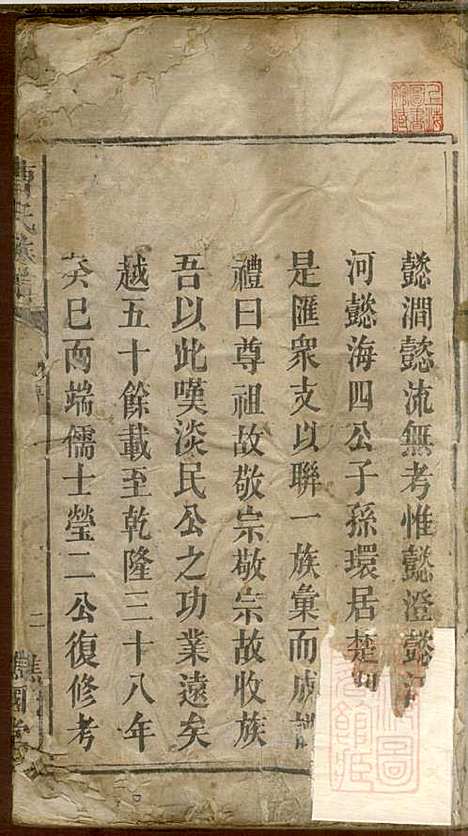 上海圖書館藏
懿澗懿流無考惟懿澄懿
河懿海四公子孫環居楚
是匯衆支以聯一族彙而成
禮曰尊祖故敬宗敬宗故收族
吾以此嘆淡民公之功業遠矣
越五十餘載至乾隆三十八年
癸巳而端儒士瑩二公復修考
氏族譜
二